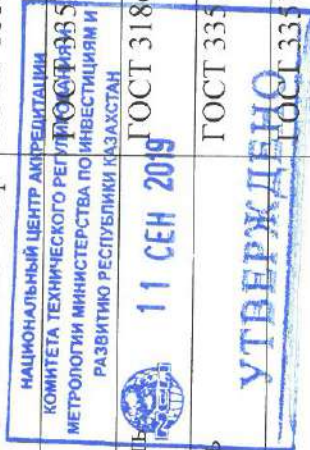 НАЦИОНАЛЬНЫЙ ЦЕНТР АККРЕДИТАЦИИ
КОМИТЕТА ТЕХНИЧЕСКОГО РЕГУЛИРОВАНИЯ И
МЕТРОЛОГИИ МИНИСТЕРСТВА ПО ИНВЕСТИЦИЯМ И
РАЗВИТИЮ РЕСПУБЛИКИ КАЗАХСТАН
11 СЕН 2019
УТВЕРЖДЕНО
ГОСТ 335
ГОСТ 318
ГОСТ 335
ГОСТ 335